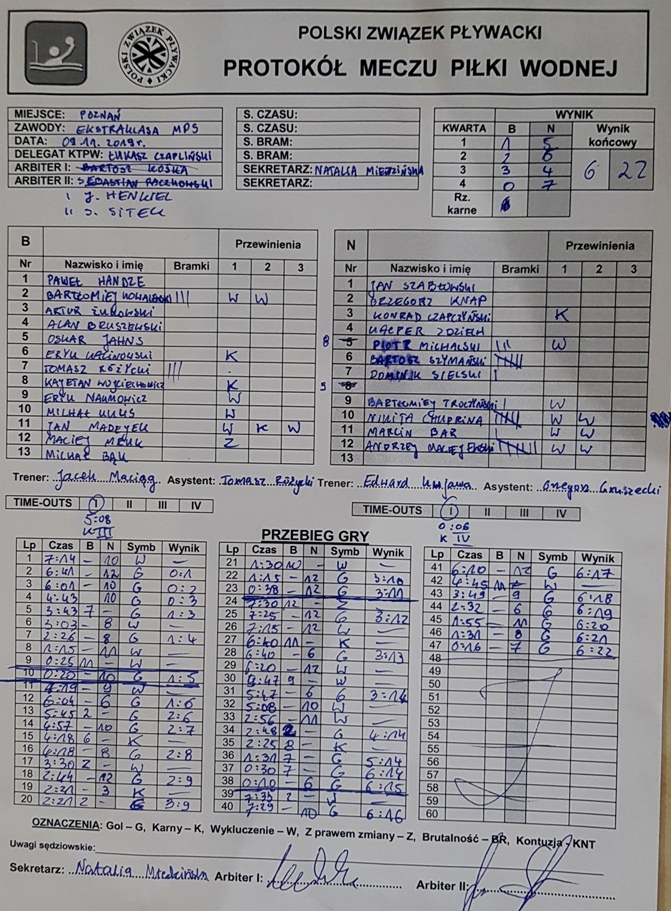 POLSKI ZWIĄZEK PŁYWACKI
PROTOKÓŁ MECZU PIŁKI WODNEJ
POLSKI ZWIĄZEK PŁYWACKI
MIEJSCE: POZNAŃ
ZAWODY: EKSTRAKLASA MPS
DATA: 09.11.2019r.
DELEGAT KTPW: ŁUKASZ CZAPLIŃSKI
ARBITER I: BARTOSZ
ARBITER II: SEBASTIAN
I J. HENKIEL
II S. SITEK
S. CZASU:
S. CZASU:
S. BRAM:
S. BRAM:
SEKRETARZ: NATALIA
SEKRETARZ:
WYNIK
KWARTA B N Wynik końcowy
1 1 5
2 2 6
3 3 4
4 0 7
6 22
Rz. karne
B Przewinienia
Nr Nazwisko i imię Bramki 1 2 3
1 PAWEŁ HANDZE
2 BARTŁOMIEJ III W W
3 ARTUR ŻUKOWSKI
4 ALAN BRUSZEWSKI
5 OSKAR JAHNS
6 ERYK KALINOWSKI K
7 TOMASZ RÓŻYCKI III
8 KAJETAN WOJCIECHOWICZ K
9 ERYK NAUMOWICZ W
10 MICHAŁ W
11 JAN MADEYEK W K W
12 MACIEJ Z
13 MICHAŁ BĄK
N Przewinienia
Nr Nazwisko i imię Bramki 1 2 3
1 JAN SZABŁOWSKI
2 GRZEGORZ KNAP
3 KONRAD CZAPCZYŃSKI K
4 KACPER
8 PIOTR MICHALSKI III W
6 BARTOSZ SZYMAŃSKI
7 DOMINIK SIELSKI I
5
9 BARTŁOMIEJ I W
10 NIKITA CHUPRINA W W
11 MARCIN BAR I W W
12 ANDRZEJ W W
13
Trener: Jacek Maciąg Asystent: Tomasz Różycki
Trener: Edward Kujawa Asystent: Gruszecki
TIME-OUTS I II III IV
5:08
K III
TIME-OUTS I II III IV
0:06
K IV
PRZEBIEG GRY
Lp Czas B N Symb Wynik
1 7:14 – 10 W –
2 6:41 – 12 G 0:1
3 6:01 – 10 G 0:2
4 4:43 10 G 0:3
5 3:43 7 – G 1:3
6 3:03 – 8 W
7 2:26 – 8 G 1:4
8 1:15 – 11 W –
9 0:25 11 – W –
10 0:20 – 10 G 1:5
11 7:19 – 9 W –
12 6:04 – 6 G 1:6
13 5:45 2 – G 2:6
14 4:57 – 10 G 2:7
15 4:18 6 – K
16 4:18 – 8 G 2:8
17 3:30 2 – W
18 2:44 – 12 G 2:9
19 2:21 – 3 K –
20 2:21 2 – G 3:9
Lp Czas B N Symb Wynik
21 1:30 10 – W –
22 1:15 – 12 G 3:10
23 0:38 – 12 G 3:11
24 7:30 12 – Z
25 7:25 – 12 G 3:12
26 7:15 – 12 W –
27 6:40 11 – K –
28 6:40 – 6 G 3:13
29 6:20 – 12 W
30 9:47 9 – W –
31 5:47 – 6 G 3:14
32 5:08 – 10 W
33 2:56 – 11 W –
34 2:48 2 – G 4:14
35 2:25 8 – K –
36 1:31 7 – G 5:14
37 0:30 7 – G 6:14
38 0:10 – 6 G 6:15
39 7:35 2 – W –
40 7:29 – 10 G 6:16
Lp Czas B N Symb Wynik
41 6:10 – 12 G 6:17
42 4:45 – W –
43 3:49 – 9 G 6:18
44 2:32 – 6 G 6:19
45 1:55 – 11 G 6:20
46 1:31 – 8 G 6:21
47 0:16 – 7 G 6:22
48
49
50
51
52
53
54
55
56
57
58
59
60
OZNACZENIA: Gol – G, Karny – K, Wykluczenie – W, Z prawem zmiany – Z, Brutalność – BR, Kontuzja – KNT
Uwagi sędziowskie:
Sekretarz: Natalia Arbiter I: Arbiter II: